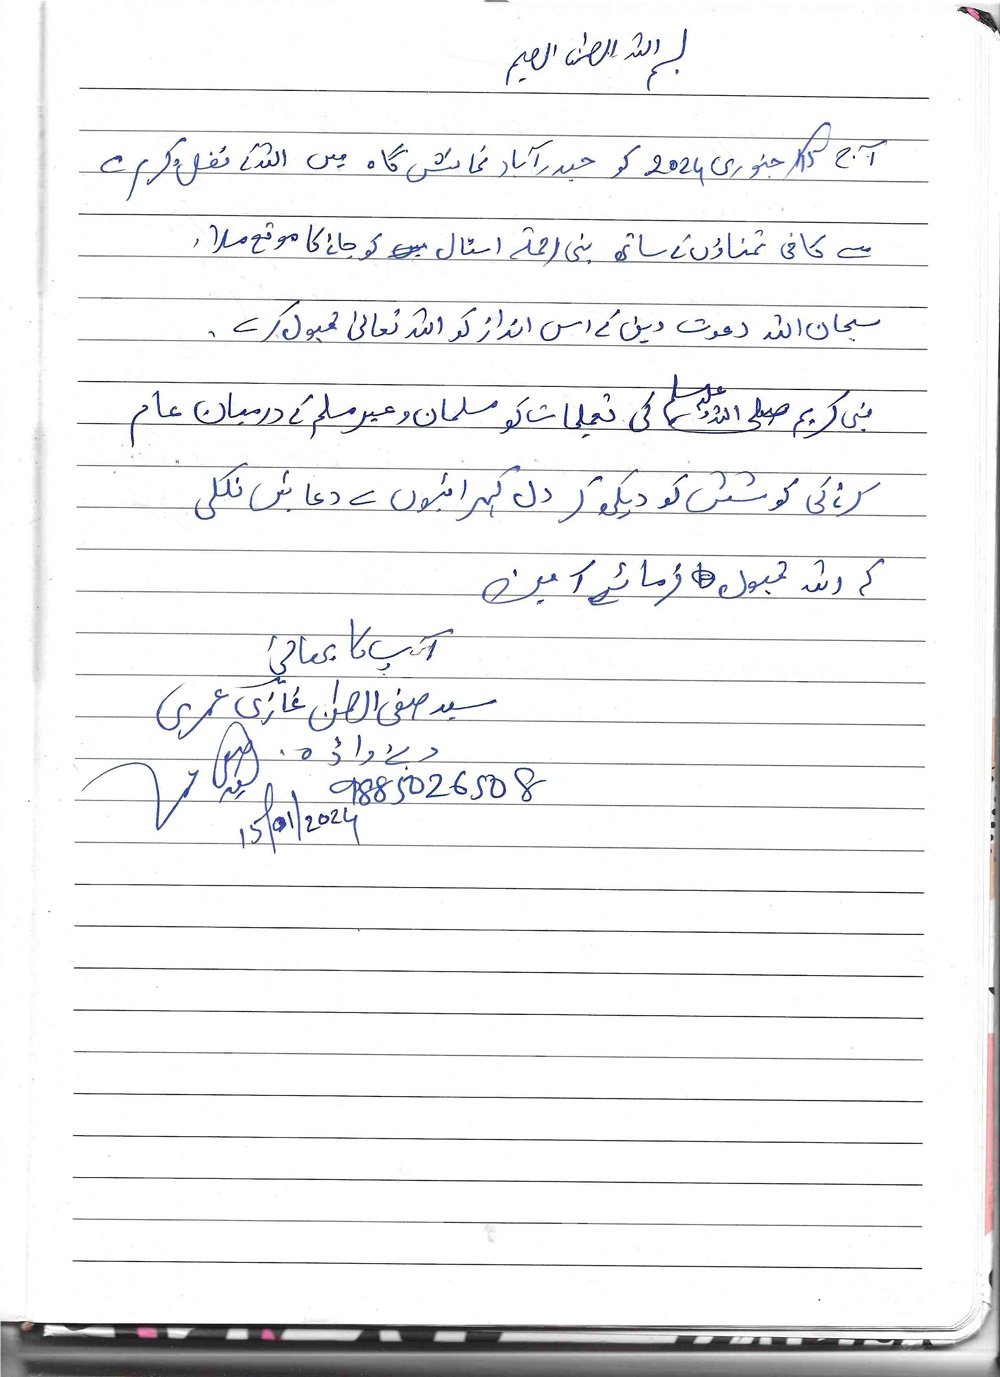 بسم اللہ الرحمٰن الرحیم
آج 15 جنوری 2024 کو حیدرآباد نمائش گاہ میں اللہ کے فضل و کرم سے
سے کافی تمناؤں کے ساتھ نبی رحمت اسٹال کو جانے کا موقع ملا۔
سبحان اللہ دعوت دین کے اس انداز کو اللہ تعالیٰ قبول کرے۔
نبی کریم صلی اللہ علیہ وسلم کی تعلیمات کو مسلمان و غیر مسلم کے درمیان عام
کرنے کی کوشش کو دیکھ کر دل گہرائیوں سے دعائیں نکلی
کہ اللہ قبول فرمائے آمین
آپ کا بھائی
سید صفی الرحمٰن غازی عمری
وجے واڑہ۔
9885026508
15/01/2024